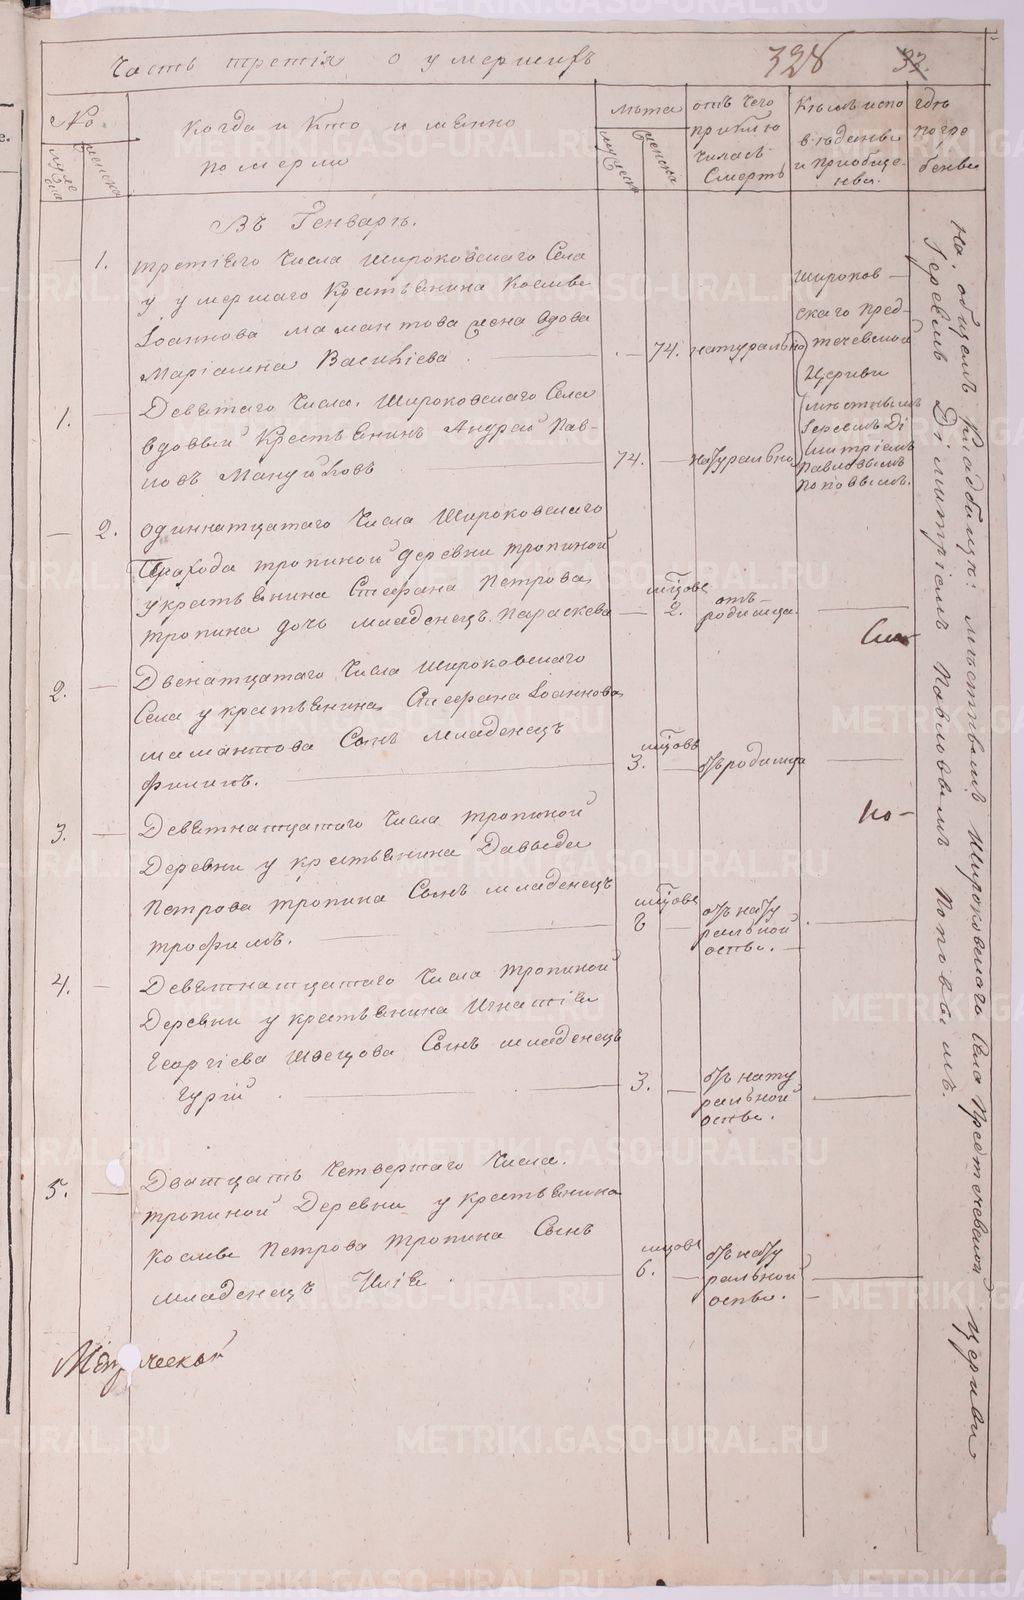 Часть третія о умершихъ
328
32.
№
мужеска
женска
Когда и Кто именно
померли
Лѣта
мужеска
женска
отъ чего
приклю
чилась
Смерть
Кѣмъ испо
вѣданы
и приобще-
ны.
гдѣ
погре
бены
Въ Генварѣ.
1. третіего Числа Широковскаго Села
у умершаго Крестьянина Космы
Іоаннова Мамантова жена вдова
Маріамна Василіева
74. натурально
Широков-
скаго Пред-
течевской
Церкви
мѣстнымъ
Іереемъ Ді
митріемъ
Павловымъ
Поповымъ.
1. Девятаго Числа. Широковскаго Села
вдовый Крестьянинъ Андрей Пав-
ловъ Мануиловъ
74. натурально
2. одиннатцатаго Числа Широковскаго
Прихода тропиной деревни тропиной
у крестьянина Стефана Петрова
тропина дочь младенецъ Параскева
мѣсяцовъ
2.
отъ
родимца.
2. Двенатцатаго Числа Широковскаго
Села у крестьянина Стефана Іоаннова
Мамантова Сынъ Младенецъ
филипъ.
мѣсяцовъ
3. отъ родимца
3. Девятнатцатаго Числа тропиной
Деревни у крестьянина Давыда
Петрова тропина Сынъ младенецъ
трофимъ.
мѣсяцовъ
отъ нату
ральной
оспы.
4. Девятнатцатаго Числа тропиной
Деревни у крестьянина Игнатія
Георгіева Швецова Сынъ младенецъ
Гурій
3. отъ нату
ральной
оспы.
5. Дватцать Четвертаго Числа.
тропиной Деревни у крестьянина
Космы Петрова тропина Сынъ
младенецъ Илія
мѣсяцовъ
6. отъ нату
ральной
оспы.
На общемъ кладбищѣ: мѣстнымъ Широковскаго Села Предтечевской Церкви
Іереемъ Дімитріемъ Павловымъ Поповымъ.
Сію
по-
Метрической
METRIKI.GASO-URAL.RU